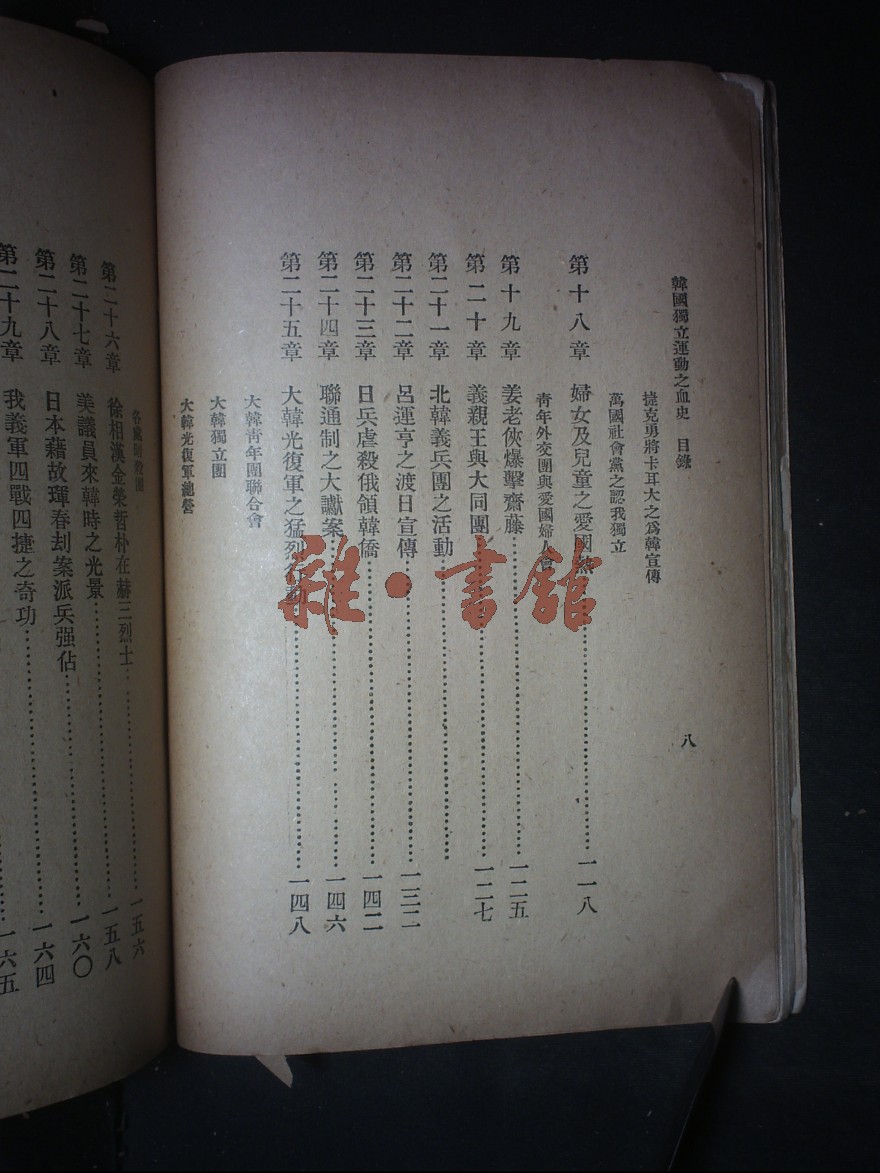 韓國獨立運動之血史 目錄 八
捷克勇將卡耳大之爲韓宣傳
萬國社會黨之認我獨立
第十八章 婦女及兒童之愛國熱……一一八
第十九章 姜老俠爆擊齋藤……一二五
靑年外交團與愛國婦人會
第二十章 義親王與大同團……一二七
第二十一章 北韓義兵團之活動……
第二十二章 呂運亨之渡日宣傳……一三二
第二十三章 日兵虐殺俄領韓僑……一四二
第二十四章 聯通制之大讞案……一四六
第二十五章 大韓光復軍之猛烈行動……一四八
大韓靑年團聯合會
大韓獨立團
大韓光復軍總營
各處暗殺團
第二十六章 徐相漢金榮哲朴在赫三烈士……一五六
第二十七章 美議員來韓時之光景……一五八
第二十八章 日本藉故琿春刦案派兵强佔……一六〇
第二十九章 我義軍四戰四捷之奇功……一六四
一六五
雜·書館